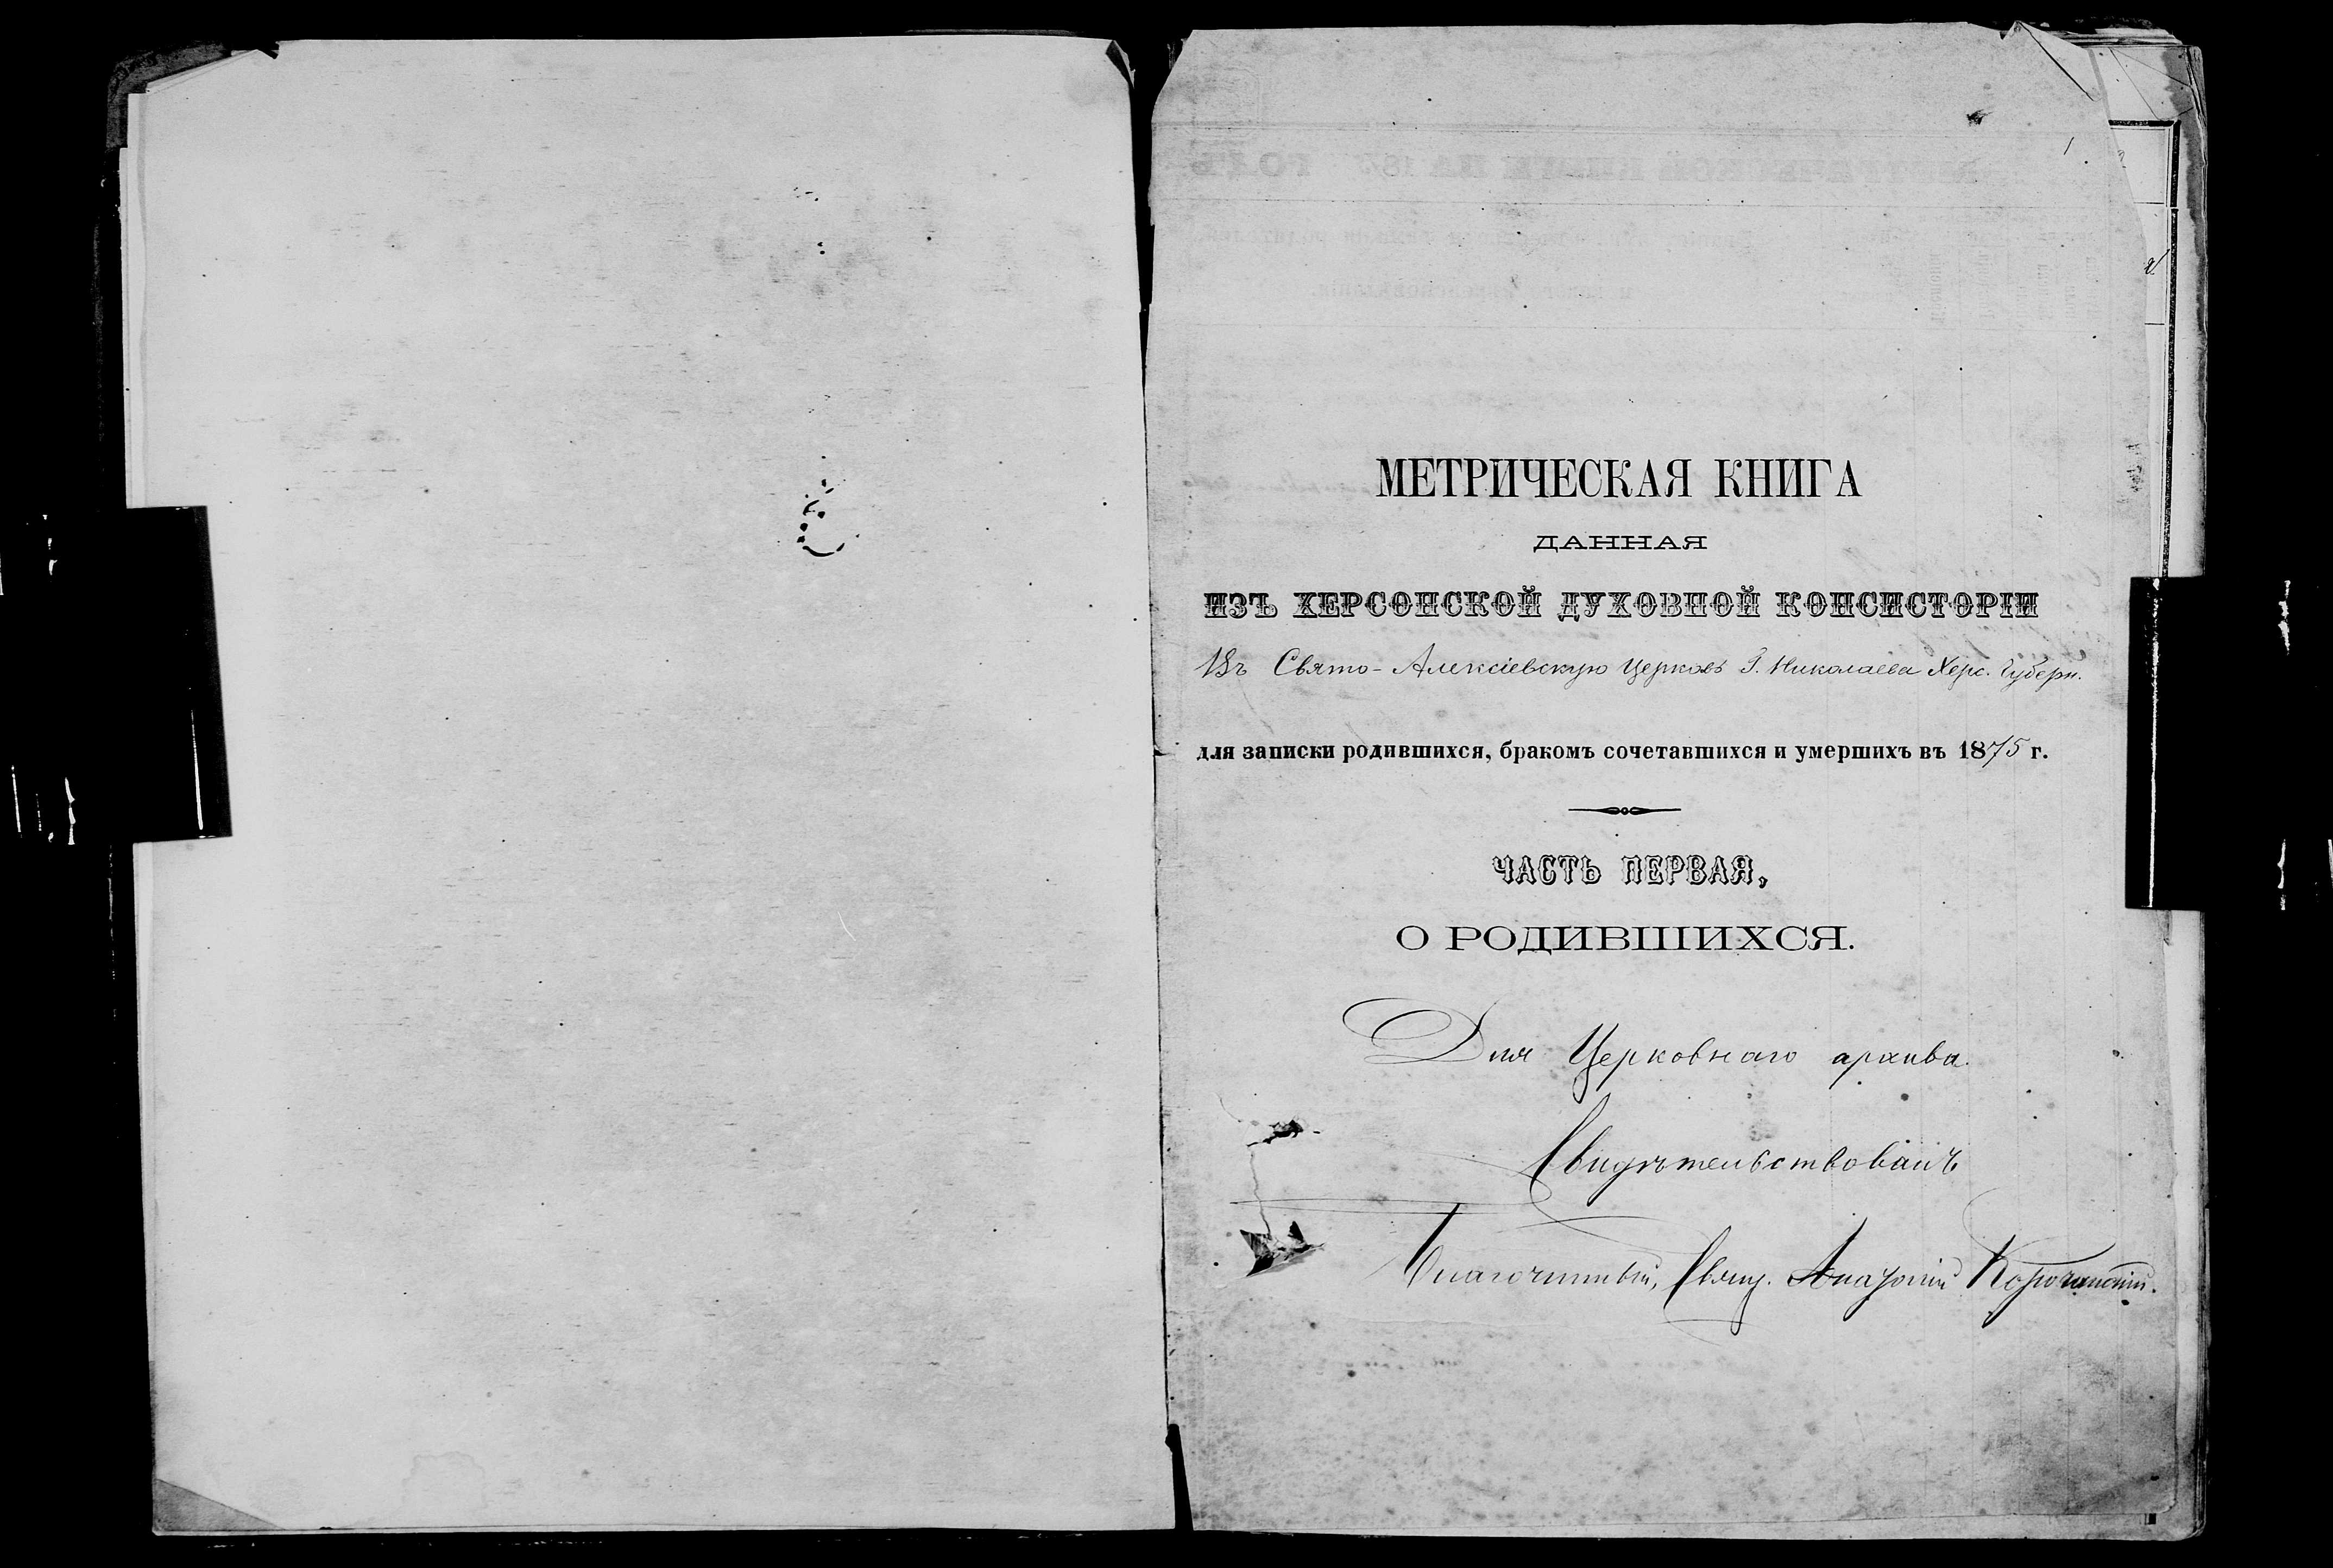 1
МЕТРИЧЕСКАЯ КНИГА
ДАННАЯ
ИЗЪ ХЕРСОНСКОЙ ДУХОВНОЙ КОНСИСТОРІИ
Въ Свято-Алексіевскую Церковь Г. Николаева Херс. Губерн.
для записки родившихся, бракомъ сочетавшихся и умершихъ въ 1875 г.
ЧАСТЬ ПЕРВАЯ,
О РОДИВШИХСЯ.
Для Церковнаго архива.
Свидѣтельствовалъ
Благочинный, Свящ.